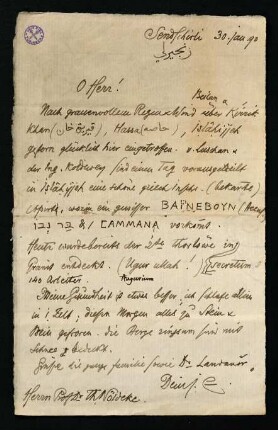 Sendschirli 30. Jan. 90
زنجيرلي
O Herr!
Nach grauenvollem Regen u Wind über Beilan u Kyryk
Khan (قيريق خان), Hassa (حاصه), Islâhijje
gestern glücklich hier eingetroffen. v. Luschan u
der Ing. Koldewey sind einen Tag vorausgeeilt
in Islâhijje eine schöne griech. Inschr. (bekannte)
worin ein gewisser ΒΑΡΝΕΒΟΥΝ (Accus)
בר נבו & CAMMANA vorkäme.
Heute wurde bereits der 2te Torlöwe in
entdeckt. (Ugur ullah!)
140 Arbeiter. Augurium
Meine Gesundheit ist etwas besser, ich schlafe allein
in 1 Zelt, diesen Morgen alles zu Stein u
Bein gefroren. die Berge ringsum sind mit
Schnee bedeckt.
Grüße die ganze Familie sowie Dr Landauer
Dein
Herrn Prof Dr Th Nöldeke.